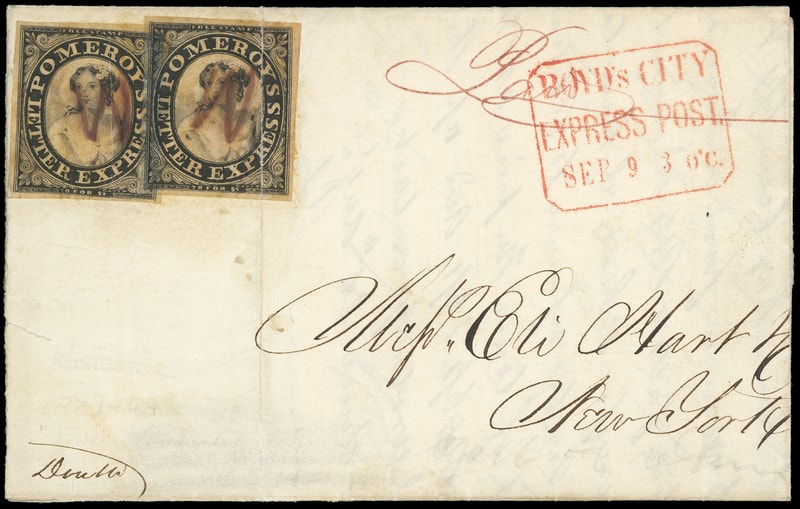 FREE STAMP
POMEROY'S
LETTER EXPRESS
20 FOR $1
FREE STAMP
POMEROY'S
LETTER EXPRESS
20 FOR $1
Paid
BOYD'S CITY
EXPRESS POST.
SEP 9 3 o'c.
Messrs. Eli Hart &
New York
ROCHESTER
Double